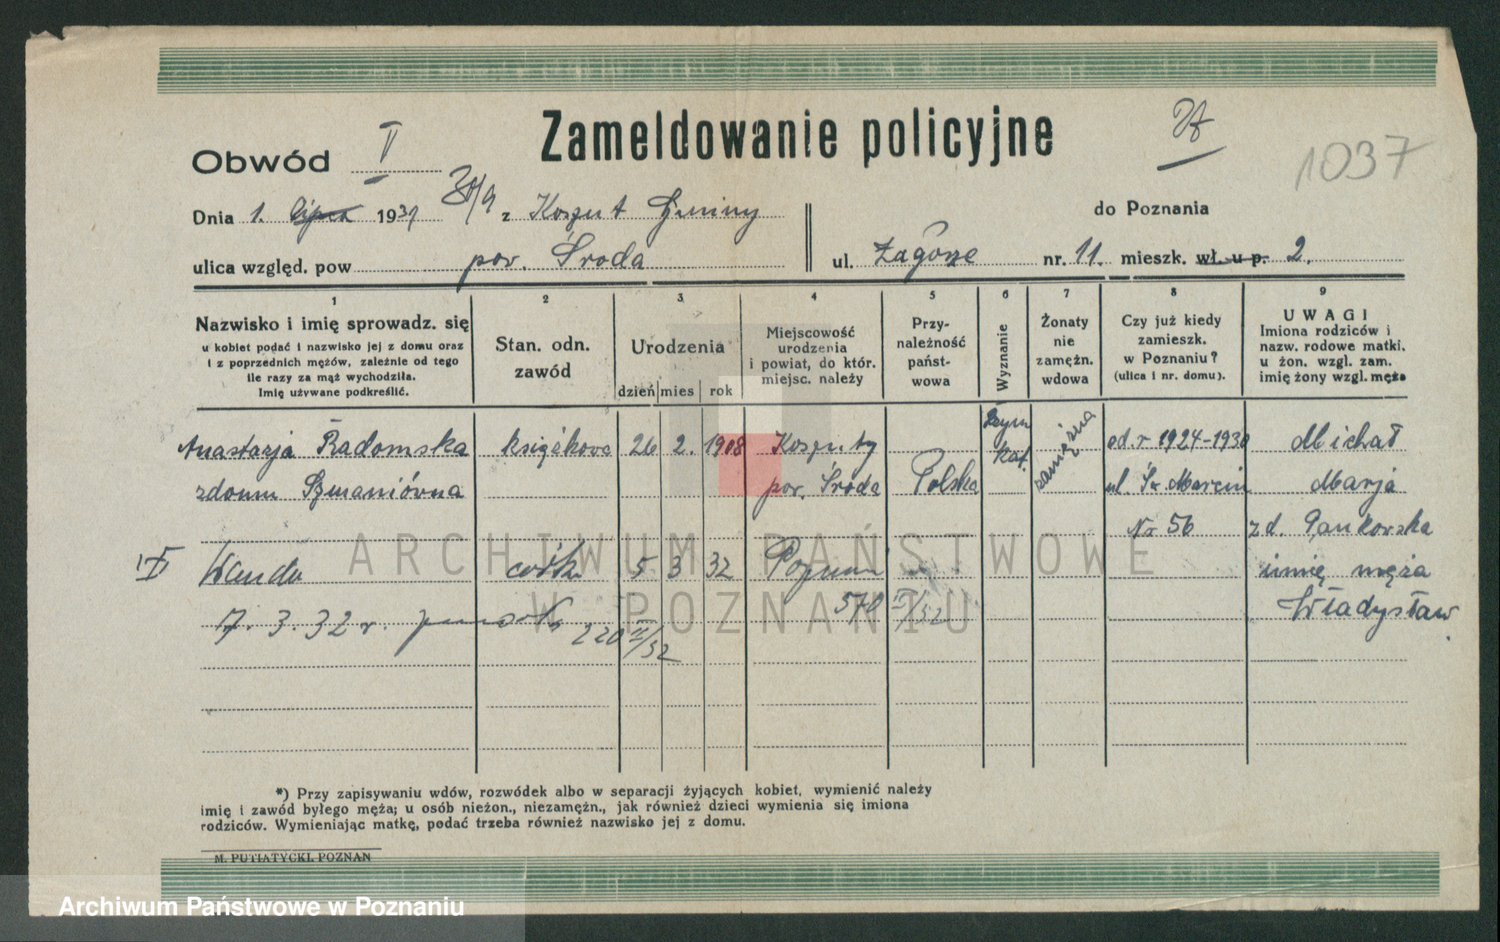 Zameldowanie policyjne
1037
Obwód I
Dnia 1. lipca 1931 30/9 z Koszut Gminy do Poznania
ulica względ. pow pov. Środa ul. Zagórze nr. 11. mieszk. wł. u p. 2.
1 2 3 4 5 6 7 8 9
Nazwisko i imię sprowadz. się
u kobiet podać i nazwisko jej z domu oraz
i z poprzednich mężów, zależnie od tego
ile razy za mąż wychodziła.
Imię używane podkreślić.
Stan. odn.
zawód
Urodzenia
dzień mies rok
Miejscowość
urodzenia
i powiat, do któr.
miejsc. należy
Przy-
należność
państ-
wowa
Wyznanie
Żonaty
nie
zamężn.
wdowa
Czy już kiedy
zamieszk.
w Poznaniu?
(ulica i nr. domu).
UWAGI
Imiona rodziców i
nazw. rodowe matki,
u żon. wzgl. zam.
imię żony wzgl. męża
Anastazja Radomska książkowa 26 2. 1908 Koszuty rzym zamężna od r 1924-1930 Michał
zdomu Szmaniówna pov. Środa Polska kat. ul. Św Marcin Marja
Nr 56 zd. Pankowska
Wanda córka 5 3 32 Poznań imię męża
17.3.32 r. 220 II/32 570 II/32 Władysław
*) Przy zapisywaniu wdów, rozwódek albo w separacji żyjących kobiet, wymienić należy
imię i zawód byłego męża; u osób nieżon., niezamężn., jak również dzieci wymienia się imiona
rodziców. Wymieniając matkę, podać trzeba również nazwisko jej z domu.
M. PUTIATYCKI, POZNAN
ARCHIWUM PAŃSTWOWE
W POZNANIU
Archiwum Państwowe w Poznaniu